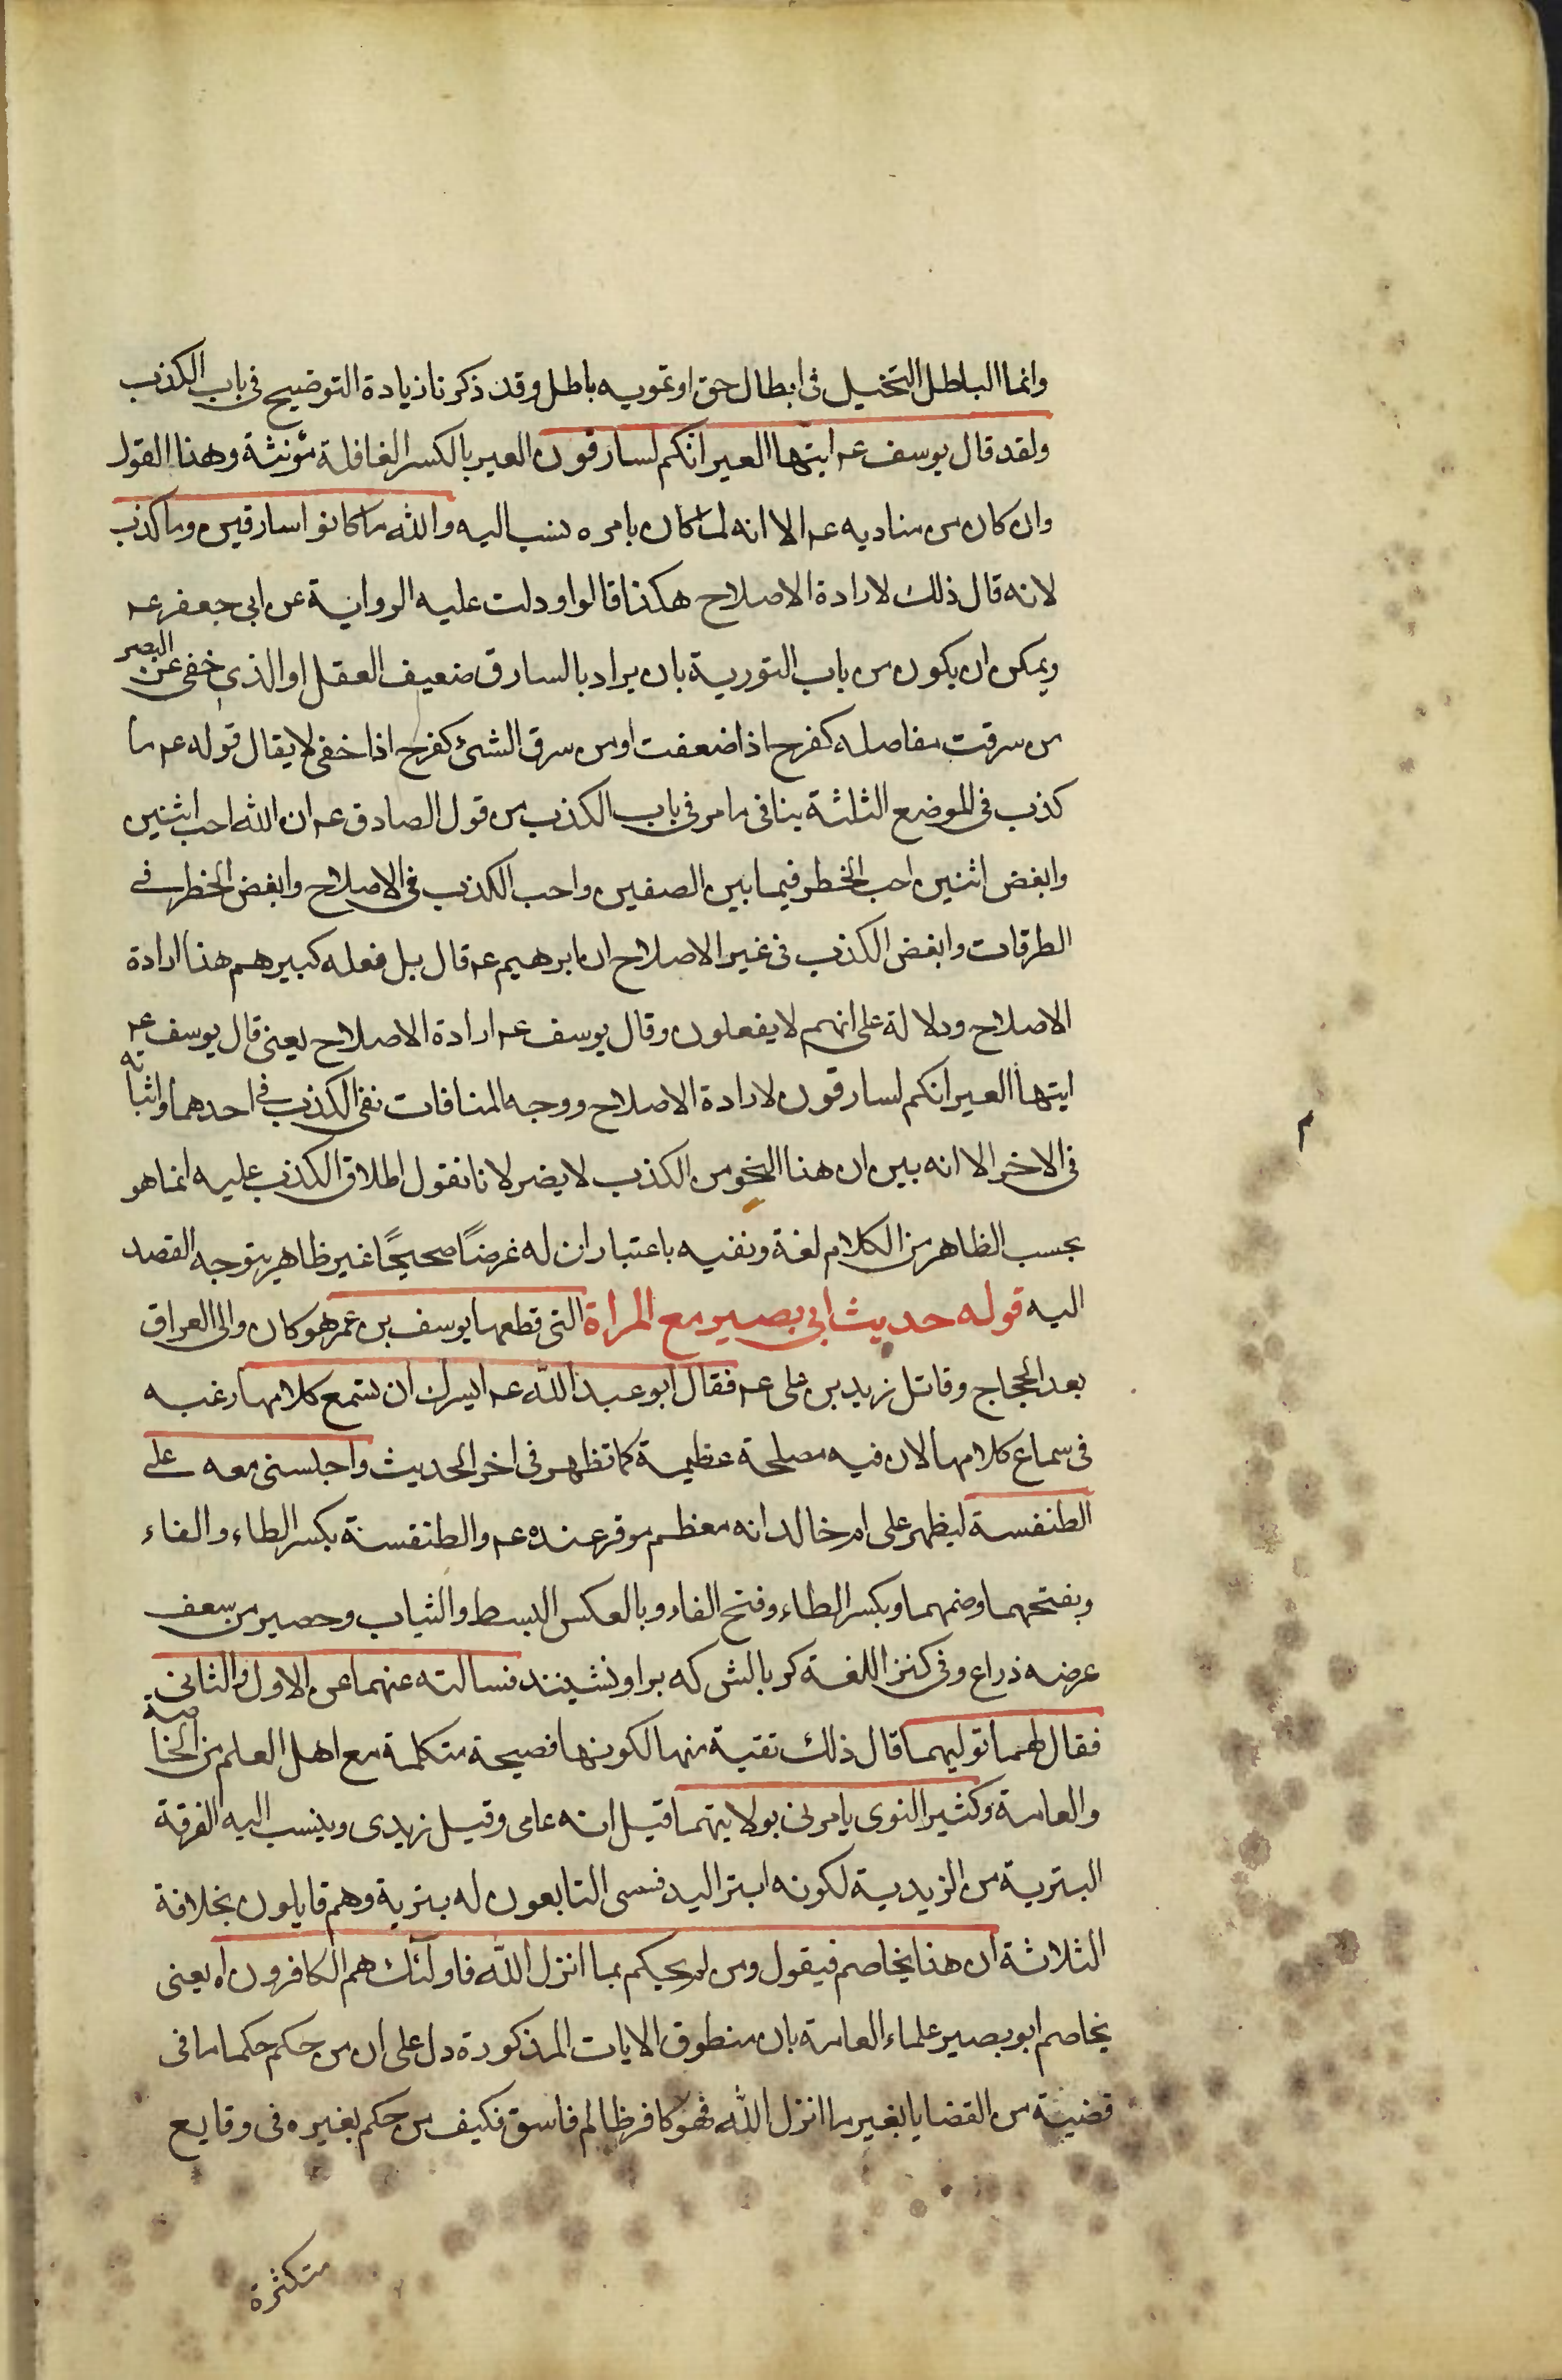 وانما الباطل التخييل فى ابطال حق او تمويه باطل وقد ذكرنا زيادة التوضيح فى باب الكذب
ولقد قال يوسف عم ايتها العير انكم لسارقون العير بالكسر القافلة مؤنثة وهذا القول
وان كان من مناديه عم الا انه لما كان بامره نسب اليه والله ما كانوا سارقين وما كذب
لانه قال ذلك لارادة الاصلاح هكذا قالوا ودلت عليه الرواية عن ابى جعفر عم
ويمكن ان يكون من باب التورية بان يراد بالسارق ضعيف العقل او الذى خفى عن البصر
من سرقت مفاصله كفرح اذا ضعفت او من سرق الشئ كفرح اذا خفى لا يقال قوله عم ما
كذب فى الموضع الثلثة ينافى ما مر فى باب الكذب من قول الصادق عم ان الله احب اثنين
وابغض اثنين احب الخطر فيما بين الصفين واحب الكذب فى الاصلاح وابغض الخطر فى
الطرقات وابغض الكذب فى غير الاصلاح ان ابرهيم عم قال بل فعله كبيرهم هذا ارادة
الاصلاح ودلالة على انهم لا يفعلون وقال يوسف عم ارادة الاصلاح يعنى قال يوسف عم
ايتها العير انكم لسارقون لارادة الاصلاح ووجه المنافات نفى الكذب فى احدهما واثباته
فى الاخر الا انه بين ان هذا النحو من الكذب لا يضر لانا نقول اطلاق الكذب عليه انما هو
بحسب الظاهر من الكلام لغة ونفيه باعتبار ان له غرضًا صحيحًا غير ظاهر يتوجه القصد
اليه قوله حديث ابى بصير مع المراة التى قطعها يوسف بن عمر هو كان والى العراق
بعد الحجاج وقاتل زيد بن على عم فقال ابو عبد الله عم ايسرك ان تسمع كلامها رغبه
فى سماع كلامها لان فيه مصلحة عظيمة كما تظهر فى اخر الحديث واجلسنى معه على
الطنفسة ليظهر على ام خالد انه معظم موقر عنده عم والطنفسة بكسر الطاء والفاء
وبفتحهما وضمهما وبكسر الطاء وفتح الفاء وبالعكس البسط والثياب وحصير من سعف
عرضه ذراع وفى كنز اللغة كر بالش كه بر او نشينند فسالته عنهما عن الاول والثانى
فقال لهما توليهما قال ذلك تقية منها لكونها فصيحة متكلمة مع اهل العلم من الخاصة
والعامة وكثير النوى يامرنى بولايتهما قيل انه عامى وقيل زيدى وينسب اليه الفرقة
البترية من الزيدية لكونه ابتر اليد فسمى التابعون له بترية وهم قايلون بخلافة
الثلاثة ان هذا يخاصم فيقول ومن لم يحكم بما انزل الله فاولئك هم الكافرون اه يعنى
يخاصم ابو بصير علماء العامة بان منطوق الايات المذكورة دل على ان من حكم حكما ما فى
قضية من القضايا بغير ما انزل الله فهو كافر ظالم فاسق فكيف من حكم بغيره فى وقايع
متكثرة
م